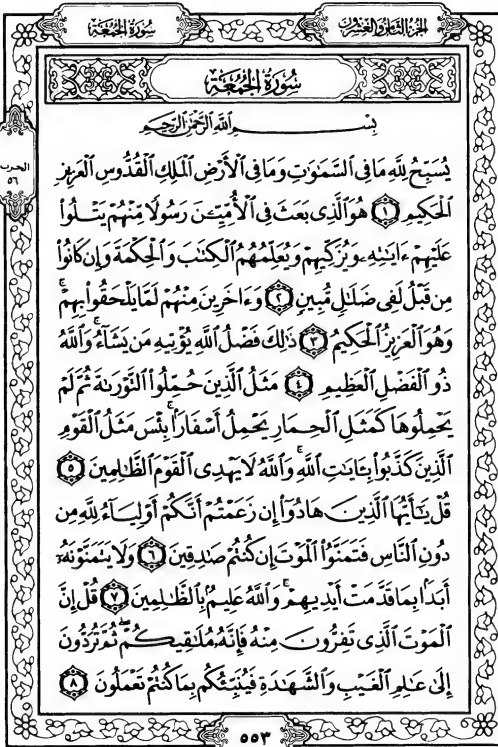 سُورَةُ الجُمُعَةِ
الجُزءُ الثَّامِنُ وَالعِشرُونَ
سُورَةُ الجُمُعَةِ
بِسْمِ ٱللَّهِ ٱلرَّحْمَٰنِ ٱلرَّحِيمِ
يُسَبِّحُ لِلَّهِ مَا فِى ٱلسَّمَٰوَٰتِ وَمَا فِى ٱلْأَرْضِ ٱلْمَلِكِ ٱلْقُدُّوسِ ٱلْعَزِيزِ
ٱلْحَكِيمِ ١ هُوَ ٱلَّذِى بَعَثَ فِى ٱلْأُمِّيِّـۧنَ رَسُولًا مِّنْهُمْ يَتْلُوا۟
عَلَيْهِمْ ءَايَٰتِهِۦ وَيُزَكِّيهِمْ وَيُعَلِّمُهُمُ ٱلْكِتَٰبَ وَٱلْحِكْمَةَ وَإِن كَانُوا۟
مِن قَبْلُ لَفِى ضَلَٰلٍ مُّبِينٍ ٢ وَءَاخَرِينَ مِنْهُمْ لَمَّا يَلْحَقُوا۟ بِهِمْ ۚ
وَهُوَ ٱلْعَزِيزُ ٱلْحَكِيمُ ٣ ذَٰلِكَ فَضْلُ ٱللَّهِ يُؤْتِيهِ مَن يَشَآءُ ۚ وَٱللَّهُ
ذُو ٱلْفَضْلِ ٱلْعَظِيمِ ٤ مَثَلُ ٱلَّذِينَ حُمِّلُوا۟ ٱلتَّوْرَىٰةَ ثُمَّ لَمْ
يَحْمِلُوهَا كَمَثَلِ ٱلْحِمَارِ يَحْمِلُ أَسْفَارًۢا ۚ بِئْسَ مَثَلُ ٱلْقَوْمِ
ٱلَّذِينَ كَذَّبُوا۟ بِـَٔايَٰتِ ٱللَّهِ ۚ وَٱللَّهُ لَا يَهْدِى ٱلْقَوْمَ ٱلظَّٰلِمِينَ ٥
قُلْ يَٰٓأَيُّهَا ٱلَّذِينَ هَادُوٓا۟ إِن زَعَمْتُمْ أَنَّكُمْ أَوْلِيَآءُ لِلَّهِ مِن
دُونِ ٱلنَّاسِ فَتَمَنَّوُا۟ ٱلْمَوْتَ إِن كُنتُمْ صَٰدِقِينَ ٦ وَلَا يَتَمَنَّوْنَهُۥٓ
أَبَدًۢا بِمَا قَدَّمَتْ أَيْدِيهِمْ ۚ وَٱللَّهُ عَلِيمٌۢ بِٱلظَّٰلِمِينَ ٧ قُلْ إِنَّ
ٱلْمَوْتَ ٱلَّذِى تَفِرُّونَ مِنْهُ فَإِنَّهُۥ مُلَٰقِيكُمْ ۖ ثُمَّ تُرَدُّونَ
إِلَىٰ عَٰلِمِ ٱلْغَيْبِ وَٱلشَّهَٰدَةِ فَيُنَبِّئُكُم بِمَا كُنتُمْ تَعْمَلُونَ ٨
الحزب
٥٦
٥٥٣